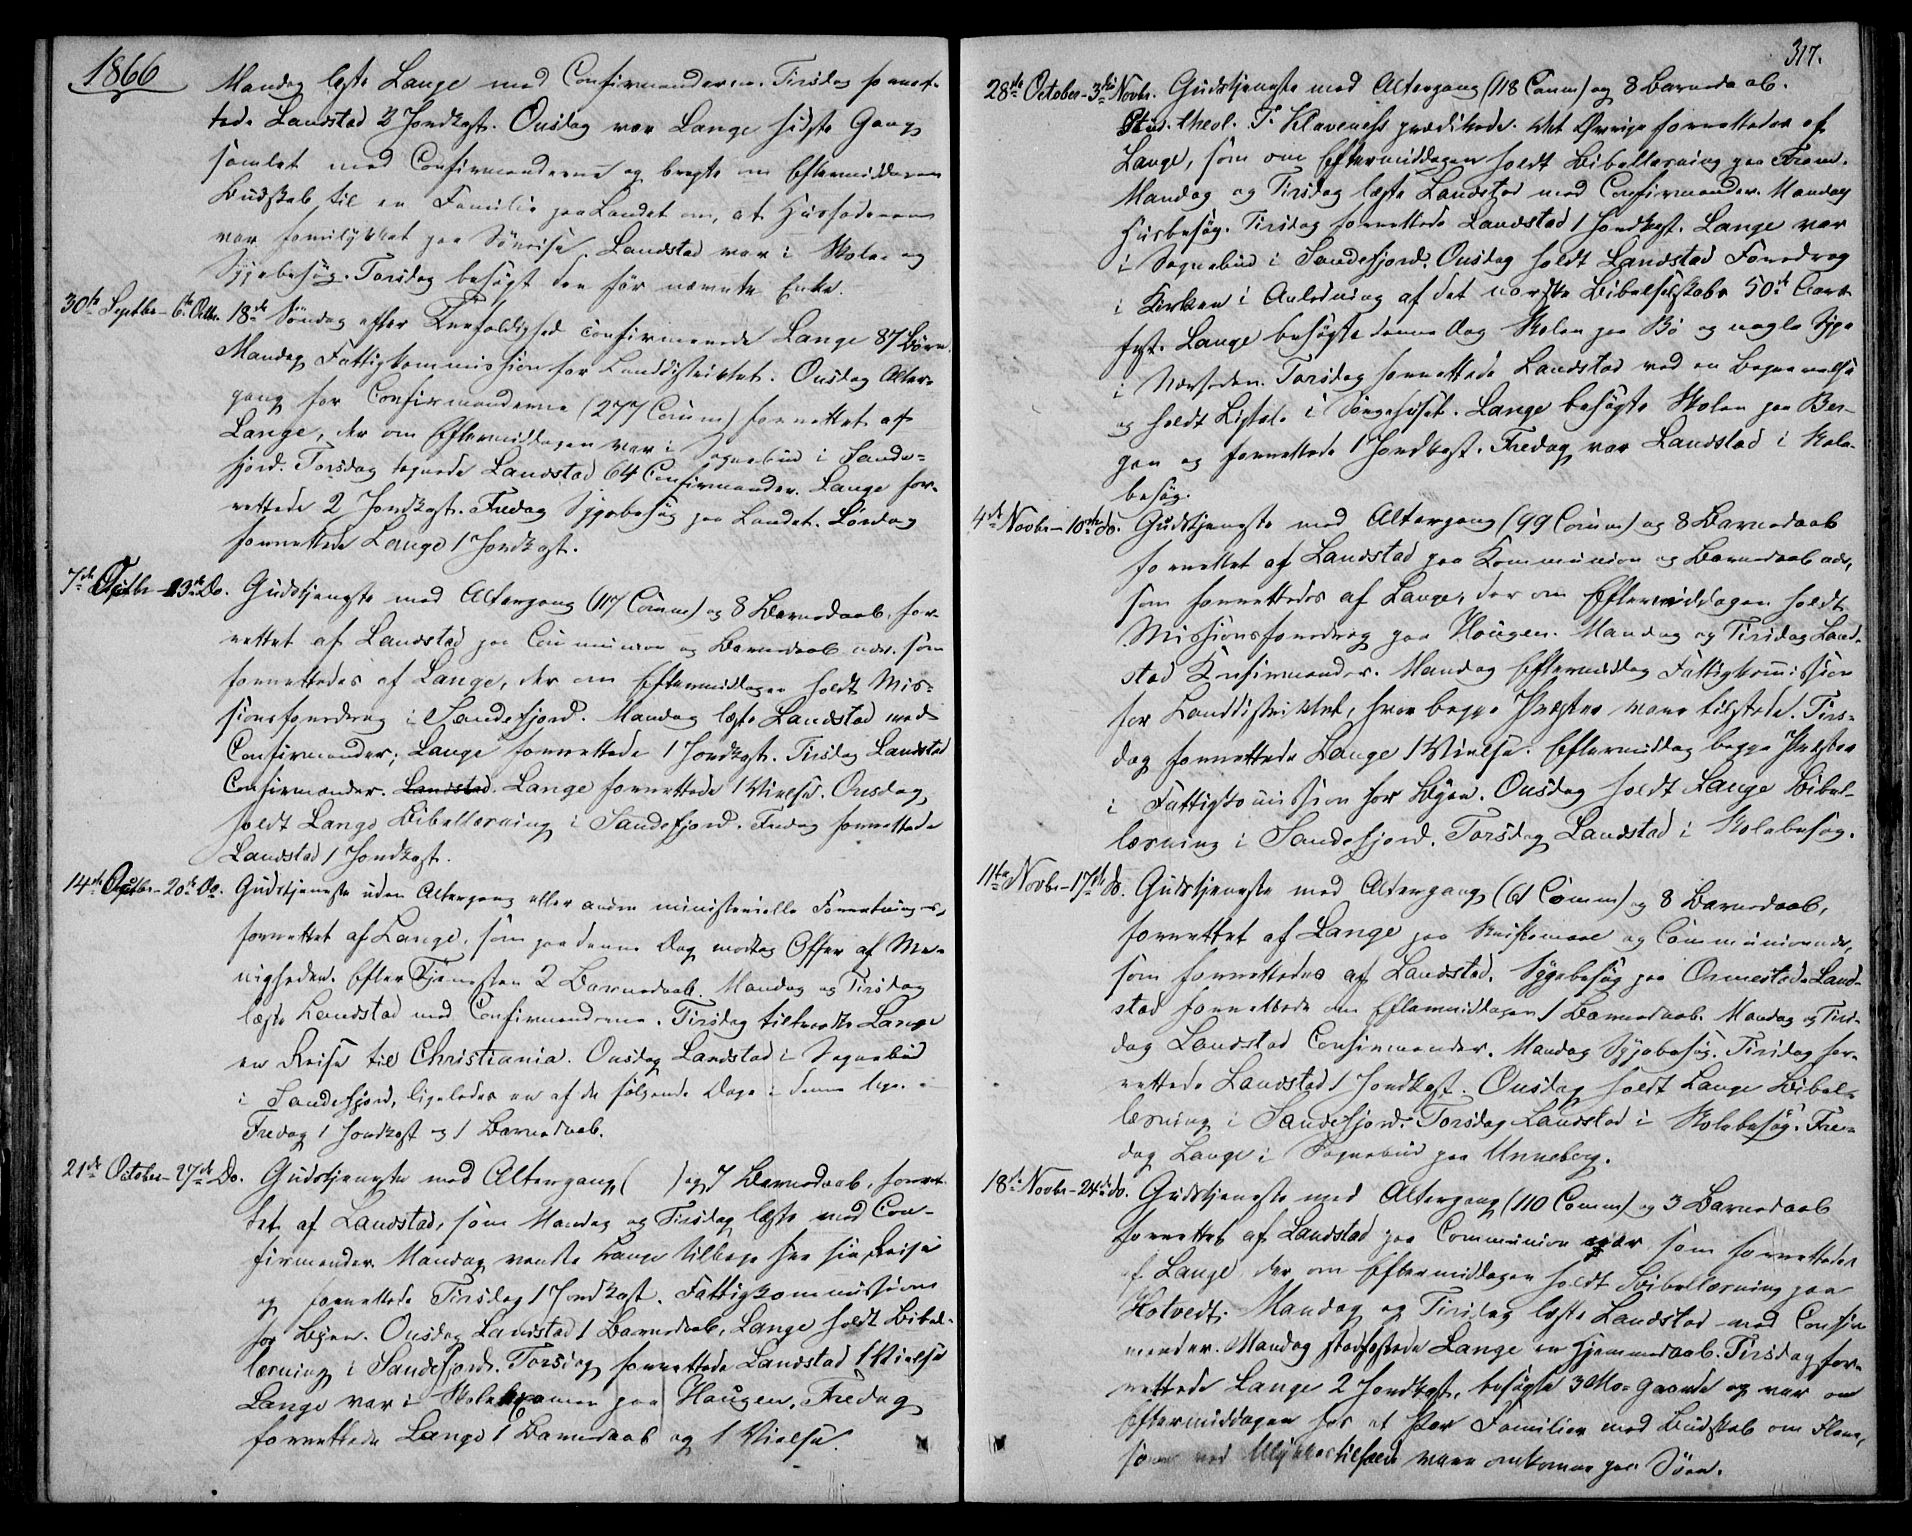 1866
Mandag læste Lange med Confirmanderne. Tirsdag forret-
tede Landstad 2 Jordkast. Onsdag var Lange sidste Gang
samlet med Confirmanderne og bragte om Eftermiddagen
Budskab til en Familie paa Landet om, at Husfaderen
var forulykket paa Söreise. Landstad var i Skole- og
Sygebesøg. Torsdag besögt den før nævnte Enke.
30te Septbr - 6te Octbr. 18de Söndag efter Trefoldighed confirmerede Lange 87 Börn.
Mandag Fattigkommission for Landdistriktet. Onsdag Alter-
gang for Confirmanderne (277 Comm) forrettet af
Lange, der om Eftermiddagen var i Sognebud i Sande-
fjord. Torsdag tegnede Landstad 64 Confirmander. Lange for-
rettede 2 Jordkast. Fredag Sygebesøg paa Landet. Lördag
forrettede Lange 1 Jordkast.
7de Octbr - 13de Do. Gudstjeneste med Altergang (117 Comm) og 8 Barnedaab, for-
rettet af Landstad paa Communion og Barnedaab nær, som
forrettedes af Lange, der om Eftermiddagen holdt Mis-
sionsforedrag i Sandefjord. Mandag læste Landstad med
Confirmander; Lange forrettede 1 Jordkast. Tirsdag Landstad
Confirmander. Landstad. Lange forrettede 1 Vielse. Onsdag
holdt Lange Bibellæsning i Sandefjord. Fredag forrettede
Landstad 1 Jordkast.
14de Octbr - 20de Do. Gudstjeneste uden Altergang eller andre ministerielle Forretninger,
forrettet af Lange, som paa denne Dag modtog Offer af Me-
nigheden. Efter Tjenesten 2 Barnedaab. Mandag og Tirsdag
læste Landstad med Confirmanderne. Tirsdag tiltraadte Lange
en Reise til Christiania. Onsdag Landstad i Sognebud
i Sandefjord, ligeledes en af de fölgende Dage i denne Uge.
Fredag 1 Jordkast og 1 Barnedaab.
21de October - 27de Do. Gudstjeneste med Altergang ( ) og 7 Barnedaab, forret-
tet af Landstad, som Mandag og Tirsdag læste med Con-
firmander. Mandag vendte Lange tilbage fra sin Reise
og forrettede Tirsdag 1 Jordkast. Fattigkommission
for Byen. Onsdag Landstad 1 Barnedaab, Lange holdt Bibel-
læsning i Sandefjord. Torsdag forrettede Landstad 1 Vielse
Lange var i Skoleexamen paa Haugen. Fredag
forrettede Lange 1 Barnedaab og 1 Vielse.
317.
28de October - 3die Novbr. Gudstjeneste med Altergang (118 Comm) og 8 Barnedaab.
Stud. theol. T. Klaveness prædikede. Det Øvrige forrettedes af
Lange, som om Eftermiddagen holdt Bibellæsning paa Fram.
Mandag og Tirsdag læste Landstad med Confirmander. Mandag
Husbesøg. Tirsdag forrettede Landstad 1 Jordkast. Lange var
i Sognebud i Sandefjord. Onsdag holdt Landstad Foredrag
i Kirken i Anledning af det norske Bibelselskabs 50de Aars-
fest. Lange besögte denne Dag Skolen paa Bö og nogle Syge
i Nærheden. Torsdag forrettede Landstad ved en Begravelse
og holdt Ligtale i Sørgehuset. Lange besögte Skolen paa Ber-
gan og forrettede 1 Jordkast. Fredag var Landstad i Skole-
besøg.
4de Novbr - 10de do. Gudstjeneste med Altergang (99 Comm) og 8 Barnedaab
forrettet af Landstad paa Kommunion og Barnedaab nær,
som forrettedes af Lange, der om Eftermiddagen holdt
Missionsforedrag paa Haugen. Mandag og Tirsdag Land-
stad Konfirmander. Mandag Eftermiddag Fattigkommission
for Landdistriktet, hvor begge Præster vare tilstede. Tirs-
dag forrettede Lange 1 Vielse. Eftermiddag begge Præster
i Fattigkommission for Byen. Onsdag holdt Lange Bibel-
læsning i Sandefjord. Torsdag Landstad i Skolebesøg.
11te Novbr - 17de do. Gudstjeneste med Altergang (61 Comm) og 8 Barnedaab,
forrettet af Lange paa Skriftemaal og Communion nær,
som forrettedes af Landstad. Sygebesøg paa Ormestad. Land-
stad forrettede om Eftermiddagen 1 Barnedaab. Mandag og Tirs-
dag Landstad Confirmander. Mandag Sygebesøg. Tirsdag for-
rettede Landstad 1 Jordkast. Onsdag holdt Lange Bibel-
læsning i Sandefjord. Torsdag Landstad i Skolebesøg. Fre-
dag Lange i Sognebud paa Unneberg.
18de Novbr - 24de do. Gudstjeneste med Altergang (110 Comm) og 3 Barnedaab
forrettet af Landstad paa Communion nær som forrettedes
af Lange, der om Eftermiddagen holdt Bibellæsning paa
Hotvedt. Mandag og Tirsdag læste Landstad med Confir-
mander. Mandag stadfæstede Lange en Hjemmedaab. Tirsdag for-
rettede Lange 2 Jordkast, besögte 3 Mo-Gaarde og var om
Eftermiddagen hos et Par Familier med Budskab om Flere,
som ved Ulykkestilfælde vare omkomne paa Söen.